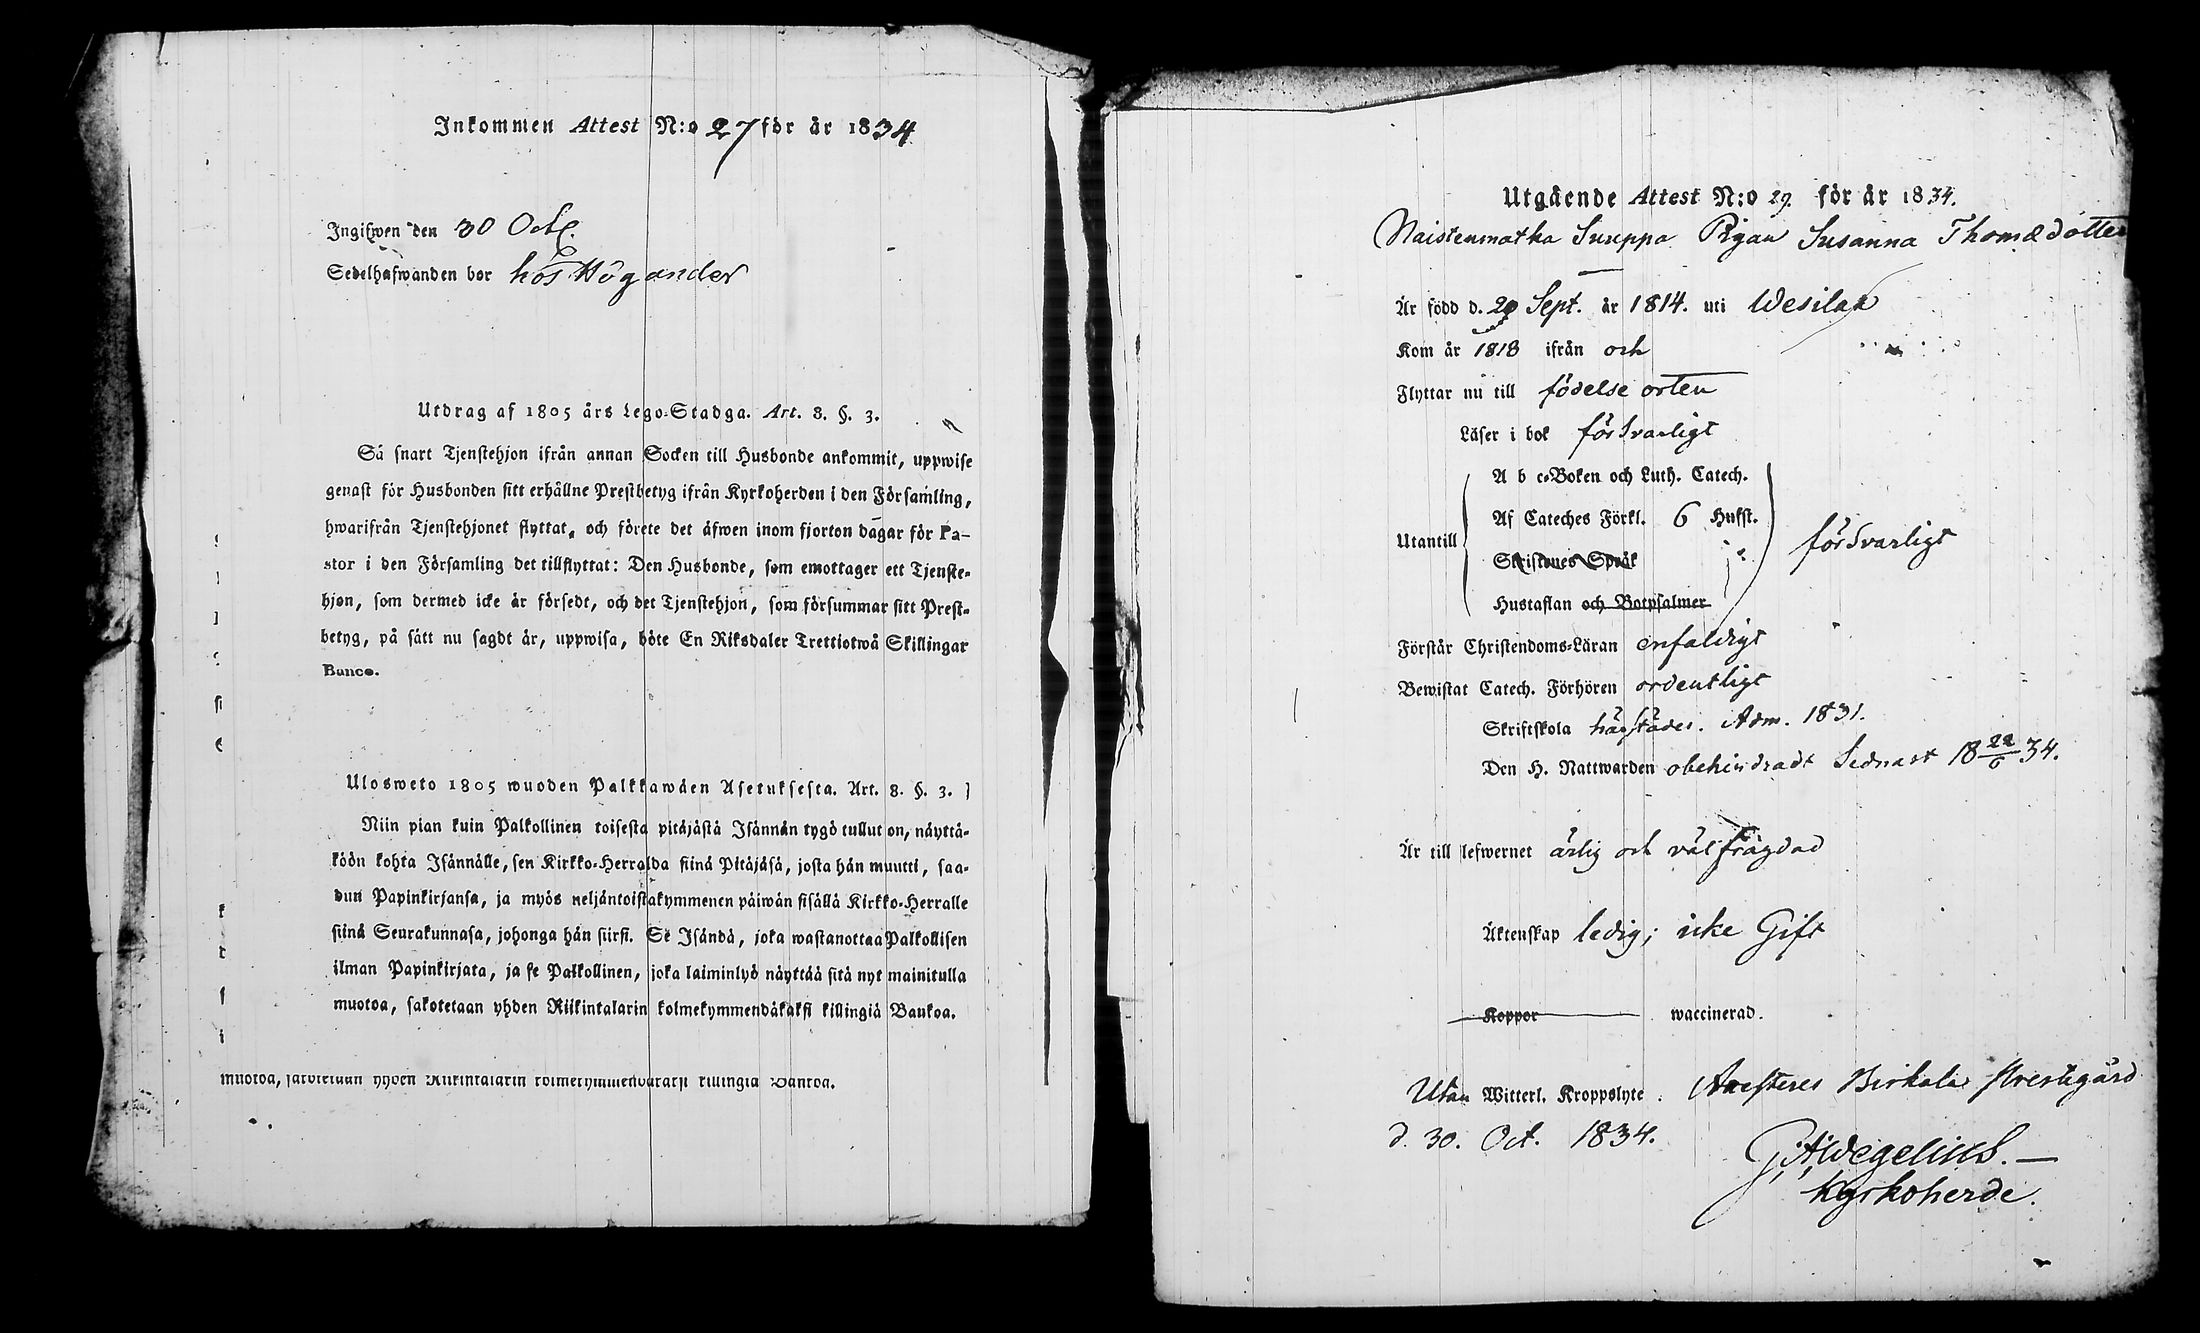 Inkommen Attest N:o 27 för år 1834
Ingifwen den 30 Oct.
Sedelhafwanden bor hos Högander
Utdrag af 1805 års Lego-Stadga. Art. 8. §. 3.
Så snart Tjenstehjon ifrån annan Socken till Husbonde ankommit, uppwise
genast för Husbonden sitt erhållne Prestbetyg ifrån Kyrkoherden i den Församling,
hwarifrån Tjenstehjonet flyttat, och förete det äfwen inom fjorton dagar för Pa-
stor i den Församling det tillflyttat: Den Husbonde, som emottager ett Tjenste-
hjon, som dermed icke är försedt, och det Tjenstehjon, som försummar sitt Prest-
betyg, på sätt nu sagdt är, uppwisa, böte En Riksdaler Trettiotwå Skillingar
Banco.
Ulosweto 1805 wuoden Palkkawäen Asetuksesta. Art. 8. §. 3.
Niin pian kuin Palkollinen toisesta pitäjästä Isännän tygö tullut on, näyttä-
köön kohta Isännälle, sen Kirkko-Herralda siinä Pitäjäsä, josta hän muutti, saa-
dun Papinkirjansa, ja myös neljäntoistakymmenen päiwän sisällä Kirkko-Herralle
siinä Seurakunnasa, johonga hän siirsi. Se Isändä, joka wastanottaa Palkollisen
ilman Papinkirjata, ja se Palkollinen, joka laiminlyö näyttää sitä nyt mainitulla
muotoa, sakotetaan yhden Riikintalarin kolmekymmendäkaksi killingiä Bankoa.
muotoa, sakotetaan yhden Riikintalarin kolmekymmendäkaksi killingiä Bankoa.
Utgående Attest N:o 29. för år 1834.
Naistenmatka Suuppa Pigan Susanna Thomædotter
Är född d. 29 Sept. år 1814. uti Wesilax
Kom år 1818 ifrån och
Flyttar nu till födelse orten
Läser i bok försvarligt
A b c-Boken och Luth. Catech.
Af Cateches Förkl. 6 Hufst.
Utantill försvarligt
Skriftenes Språk
Hustaflan och Botpsalmer
Förstår Christendoms-Läran enfaldigt
Bewistat Catech. Förhören ordentligt
Skriftskola härstädes. Adm. 1831.
Den H. Nattwarden obehindradt Sednast 18 22/6 34.
Är till lefwernet ärlig och välfrägdad
Äktenskap ledig; icke Gift
Koppor waccinerad.
Utan Witterl. Kroppslyte. Attesteres Birkala Prestegård
d. 30. Oct. 1834.
Kyrkoherde.